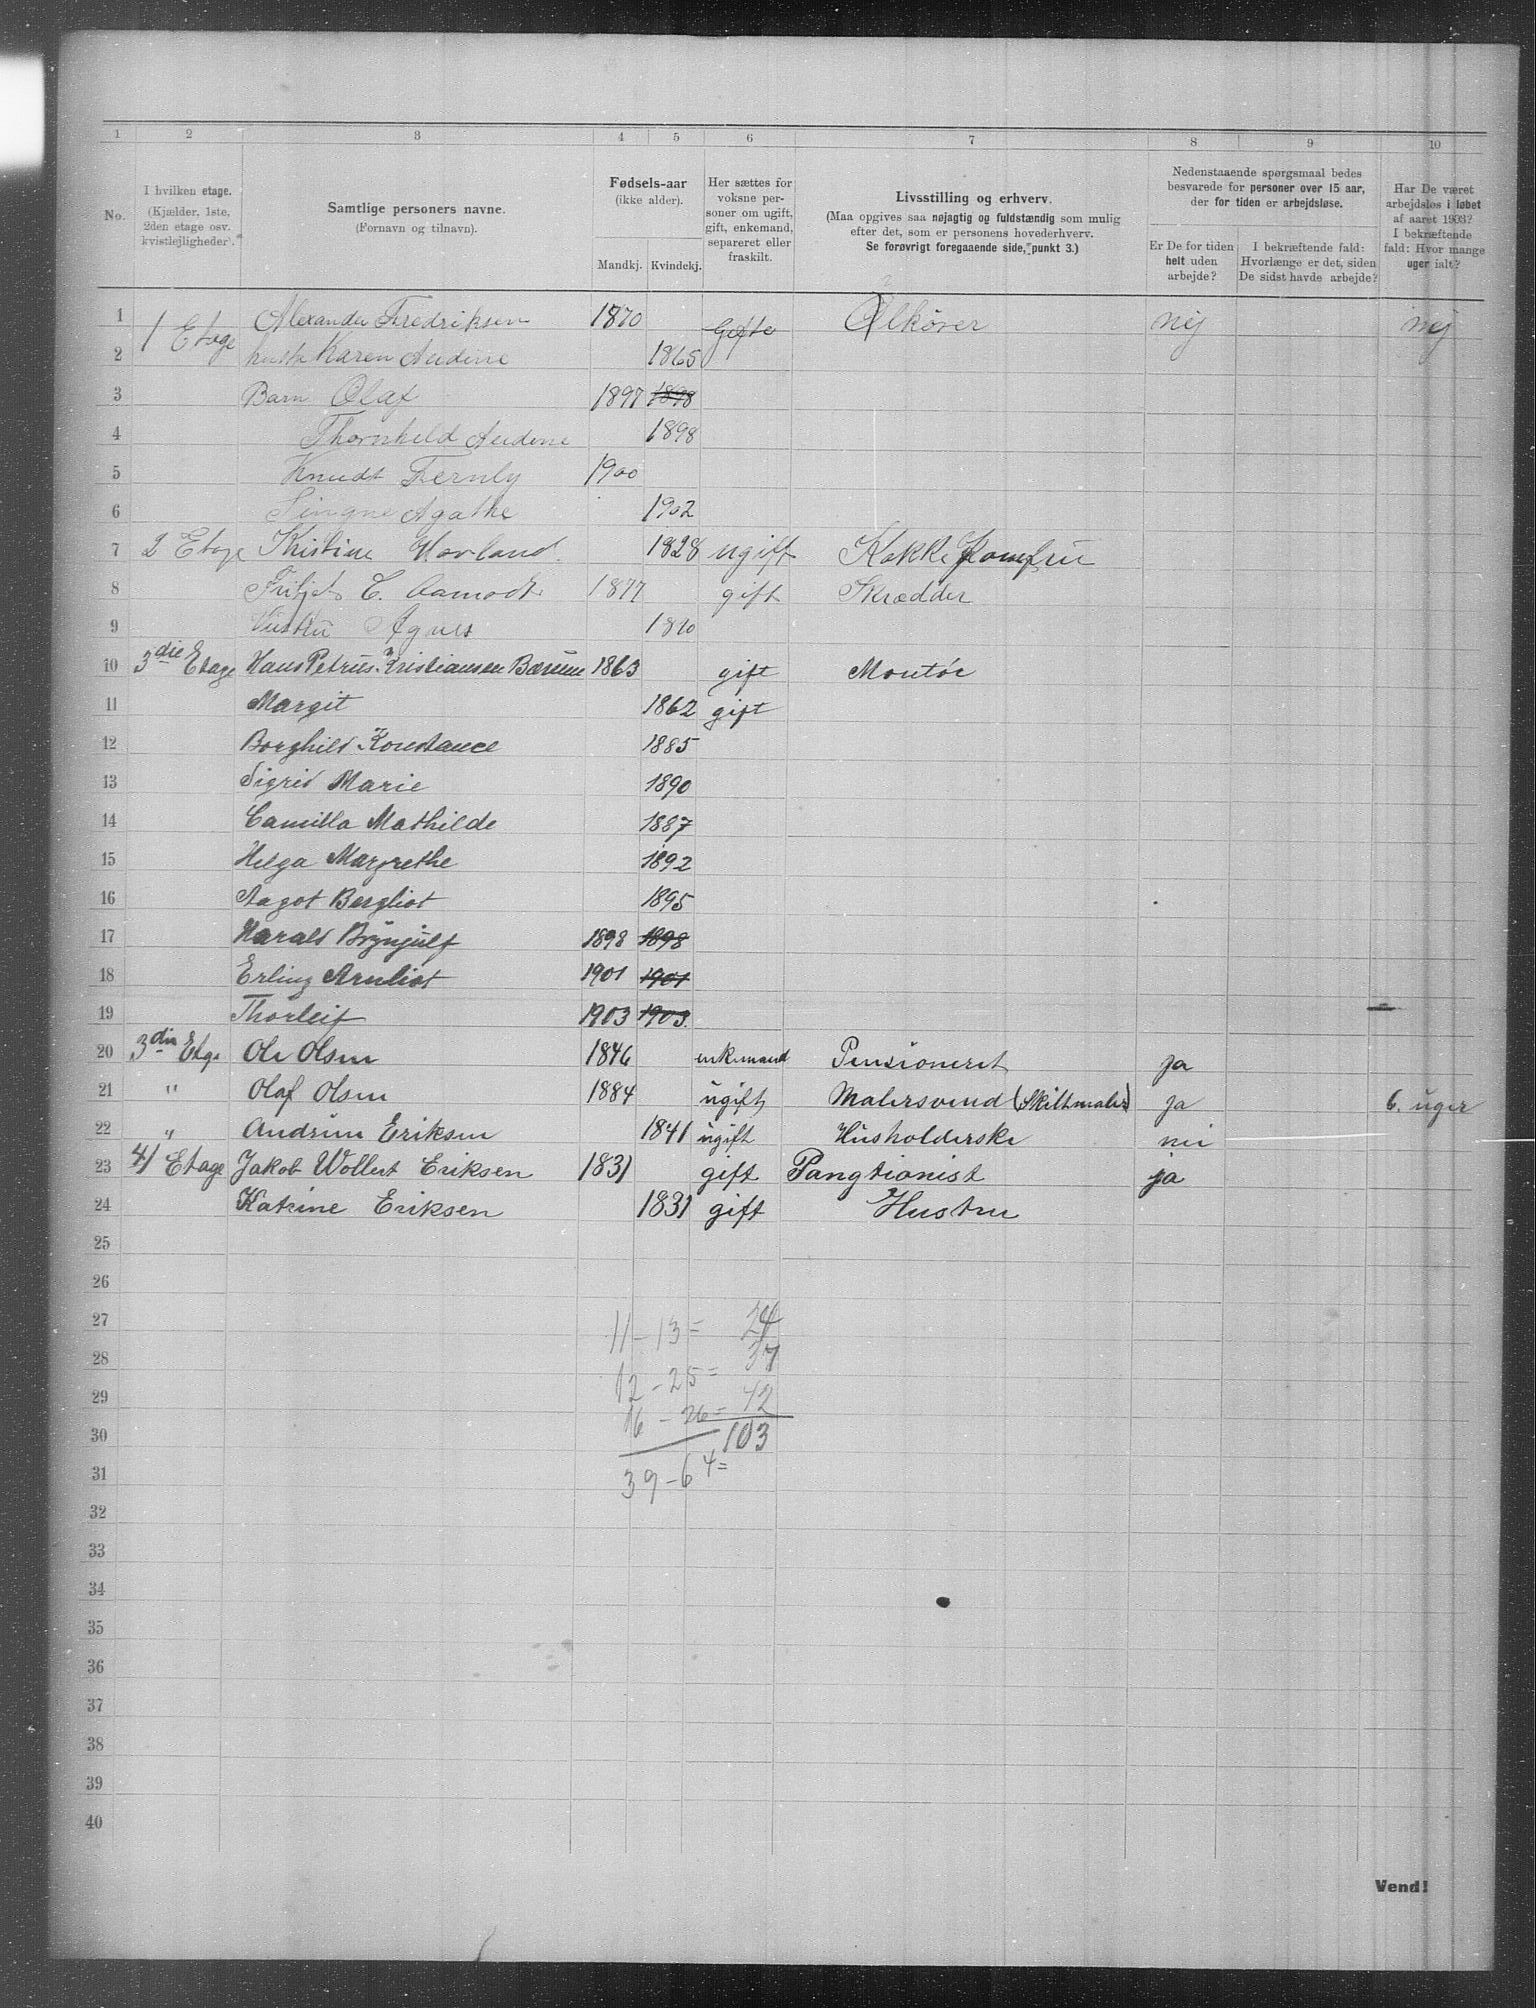 1 2 3 4 5 6 7 8 9 10
No.
I hvilken etage.
(Kjælder, 1ste,
2den etage osv.
kvistlejligheder).
Samtlige personers navne.
(Fornavn og tilnavn).
Fødsels-aar
(ikke alder).
Mandkj. Kvindekj.
Her sættes for
voksne per-
soner om ugift,
gift, enkemand,
separeret eller
fraskilt.
Livsstilling og erhverv.
(Maa opgives saa nøjagtig og fuldstændig som mulig
efter det, som er personens hovederhverv.
Se forøvrigt foregaaende side, punkt 3.)
Nedenstaaende spørgsmaal bedes
besvarede for personer over 15 aar,
der for tiden er arbejdsløse.
Er De for tiden
helt uden
arbejde?
I bekræftende fald:
Hvorlænge er det, siden
De sidst havde arbejde?
Har De været
arbejdsløs i løbet
af aaret 1903?
I bekræftende
fald: Hvor mange
uger ialt?
1 1 Etage Alexander Fredriksen 1870 Gifte Ølkører nej nej
2 hustr Karen Andine 1865
3 Barn Olaf 1897 1898
4 Thornhild Andine 1898
5 Knudt Fernly 1900
6 Singne Agathe 1902
7 2 Etage Kristine Hovland. 1828 ugift Kokke Jomfru
8 Fritjof C. Aamodt 1877 gift Skrædder
9 Hustru Agnes 1870
10 3die Etage Hans Petrus Kristiansen Bærum 1863 gift Montør
11 Margit 1862 gift
12 Borghild Konstance 1885
13 Sigrid Marie 1890
14 Camilla Mathilde 1887
15 Helga Margrethe 1892
16 Aagot Bergliot 1895
17 Harald Brynjulf 1898 1898
18 Erling Arnliot 1901 1901
19 Thorleif 1903 1903.
20 3die Etge Ole Olsen 1846 enkemand Pensioneret ja
21 " Olaf Olsen 1884 ugift Malersvend (Skiltmaler) ja 6. uger
22 " Andrine Eriksen 1841 ugift Husholderske nei
23 4 Etage Jakob Wollert Eriksen 1831 gift Pangtionist ja
24 Katrine Eriksen 1831 gift Hustru
25
26
27 11 - 13 = 24
28 12 - 25 = 37
29 16 - 26 = 42
30 103
31 39 - 64 =
32
33
34
35
36
37
38
39
40
Vend!